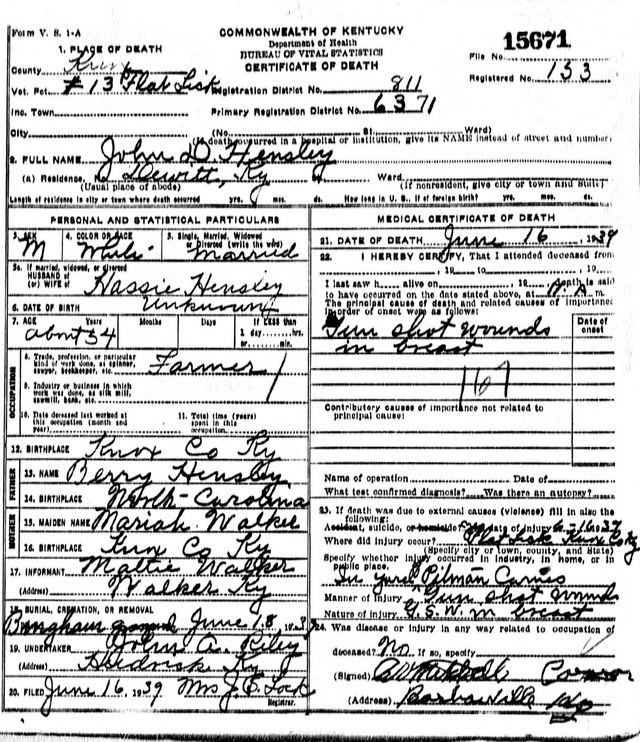 Form V. S. 1-A
COMMONWEALTH OF KENTUCKY
Department of Health
BUREAU OF VITAL STATISTICS
CERTIFICATE OF DEATH
15671
File No.
Registered No. 133
1. PLACE OF DEATH
County Knox
Vot. Pct. #13 Flat Lick Registration District No. 811
Inc. Town Primary Registration District No. 6371
City (No. St. Ward)
(If death occurred in a hospital or institution, give its NAME instead of street and number)
2. FULL NAME John D. Hensley
(a) Residence, No. Dewitt, Ky Ward
(Usual place of abode) (If nonresident, give city or town and State)
Length of residence in city or town where death occurred yrs. mos. ds. How long in U. S., if of foreign birth? yrs. mos. ds.
PERSONAL AND STATISTICAL PARTICULARS
3. SEX M
4. COLOR OR RACE White
5. Single, Married, Widowed or Divorced (write the word) Married
5a. If married, widowed, or divorced
HUSBAND of
(or) WIFE of Hassie Hensley
6. DATE OF BIRTH Unknown
7. AGE Years Months Days If LESS than
about 54 1 day hrs.
or min.
OCCUPATION
8. Trade, profession, or particular kind of work done, as spinner, sawyer, bookkeeper, etc. Farmer
9. Industry or business in which work was done, as silk mill, sawmill, bank, etc.
10. Date deceased last worked at this occupation (month and year)
11. Total time (years) spent in this occupation
12. BIRTHPLACE Knox Co Ky
FATHER
13. NAME Berry Hensley
14. BIRTHPLACE North-Carolina
MOTHER
15. MAIDEN NAME Mariah Walker
16. BIRTHPLACE Knox Co Ky
17. INFORMANT Mattie Walker
(Address) Walker Ky
18. BURIAL, CREMATION, OR REMOVAL
Bingham June 18, 193
19. UNDERTAKER John A. Riley
(Address) Hedrick Ky
20. FILED June 16, 1939 Mrs J E
Registrar.
MEDICAL CERTIFICATE OF DEATH
21. DATE OF DEATH June 16 1939
22. I HEREBY CERTIFY, That I attended deceased from
, 19 to , 19
I last saw h alive on , 19 death is said
to have occurred on the date stated above, at A. m.
The principal cause of death and related causes of importance
in order of onset were as follows:
Date of onset
Gun shot wounds
in breast
167
Contributory causes of importance not related to
principal cause:
Name of operation Date of
What test confirmed diagnosis? Was there an autopsy?
23. If death was due to external causes (violence) fill in also the
following:
Accident, suicide, or homicide? date of injury 6-16-37
Where did injury occur? Flat Lick Knox Co Ky
(Specify city or town, county, and State)
Specify whether injury occurred in industry, in home, or in
public place. In yard
Manner of injury Gun shot wounds
Nature of injury G. S. W. in breast
24. Was disease or injury in any way related to occupation of
deceased? No If so, specify
(Signed) Coroner
(Address) Barbourville Ky